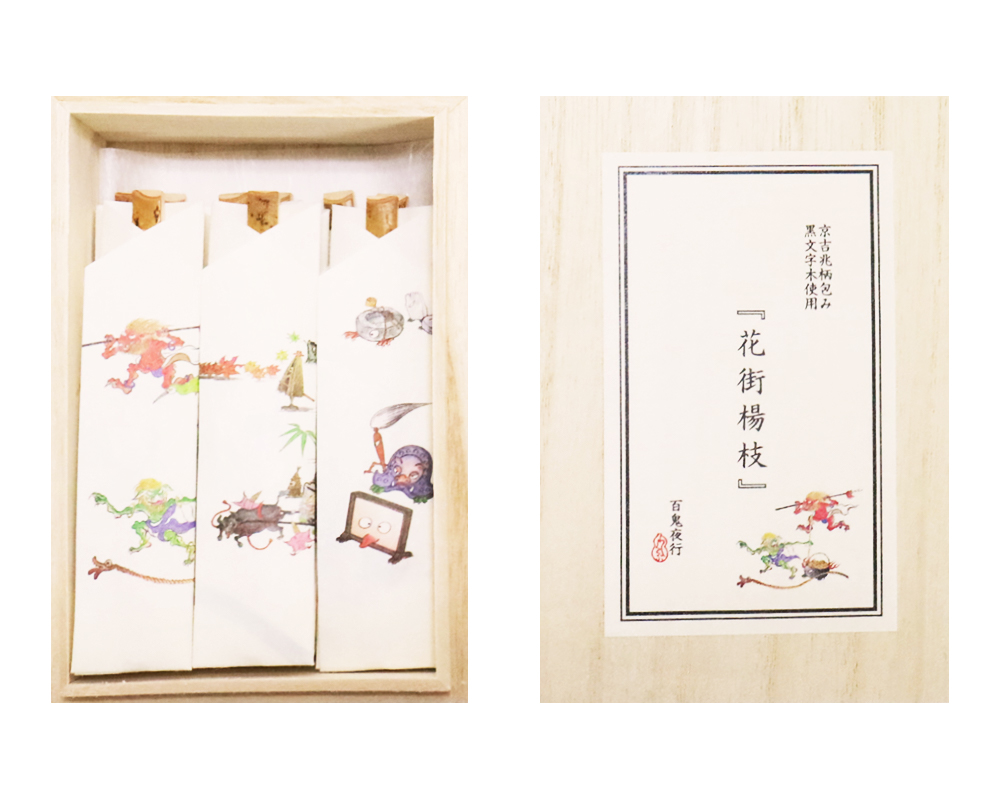 京吉兆柄包み
黒文字木使用
『花街楊枝』
百鬼夜行